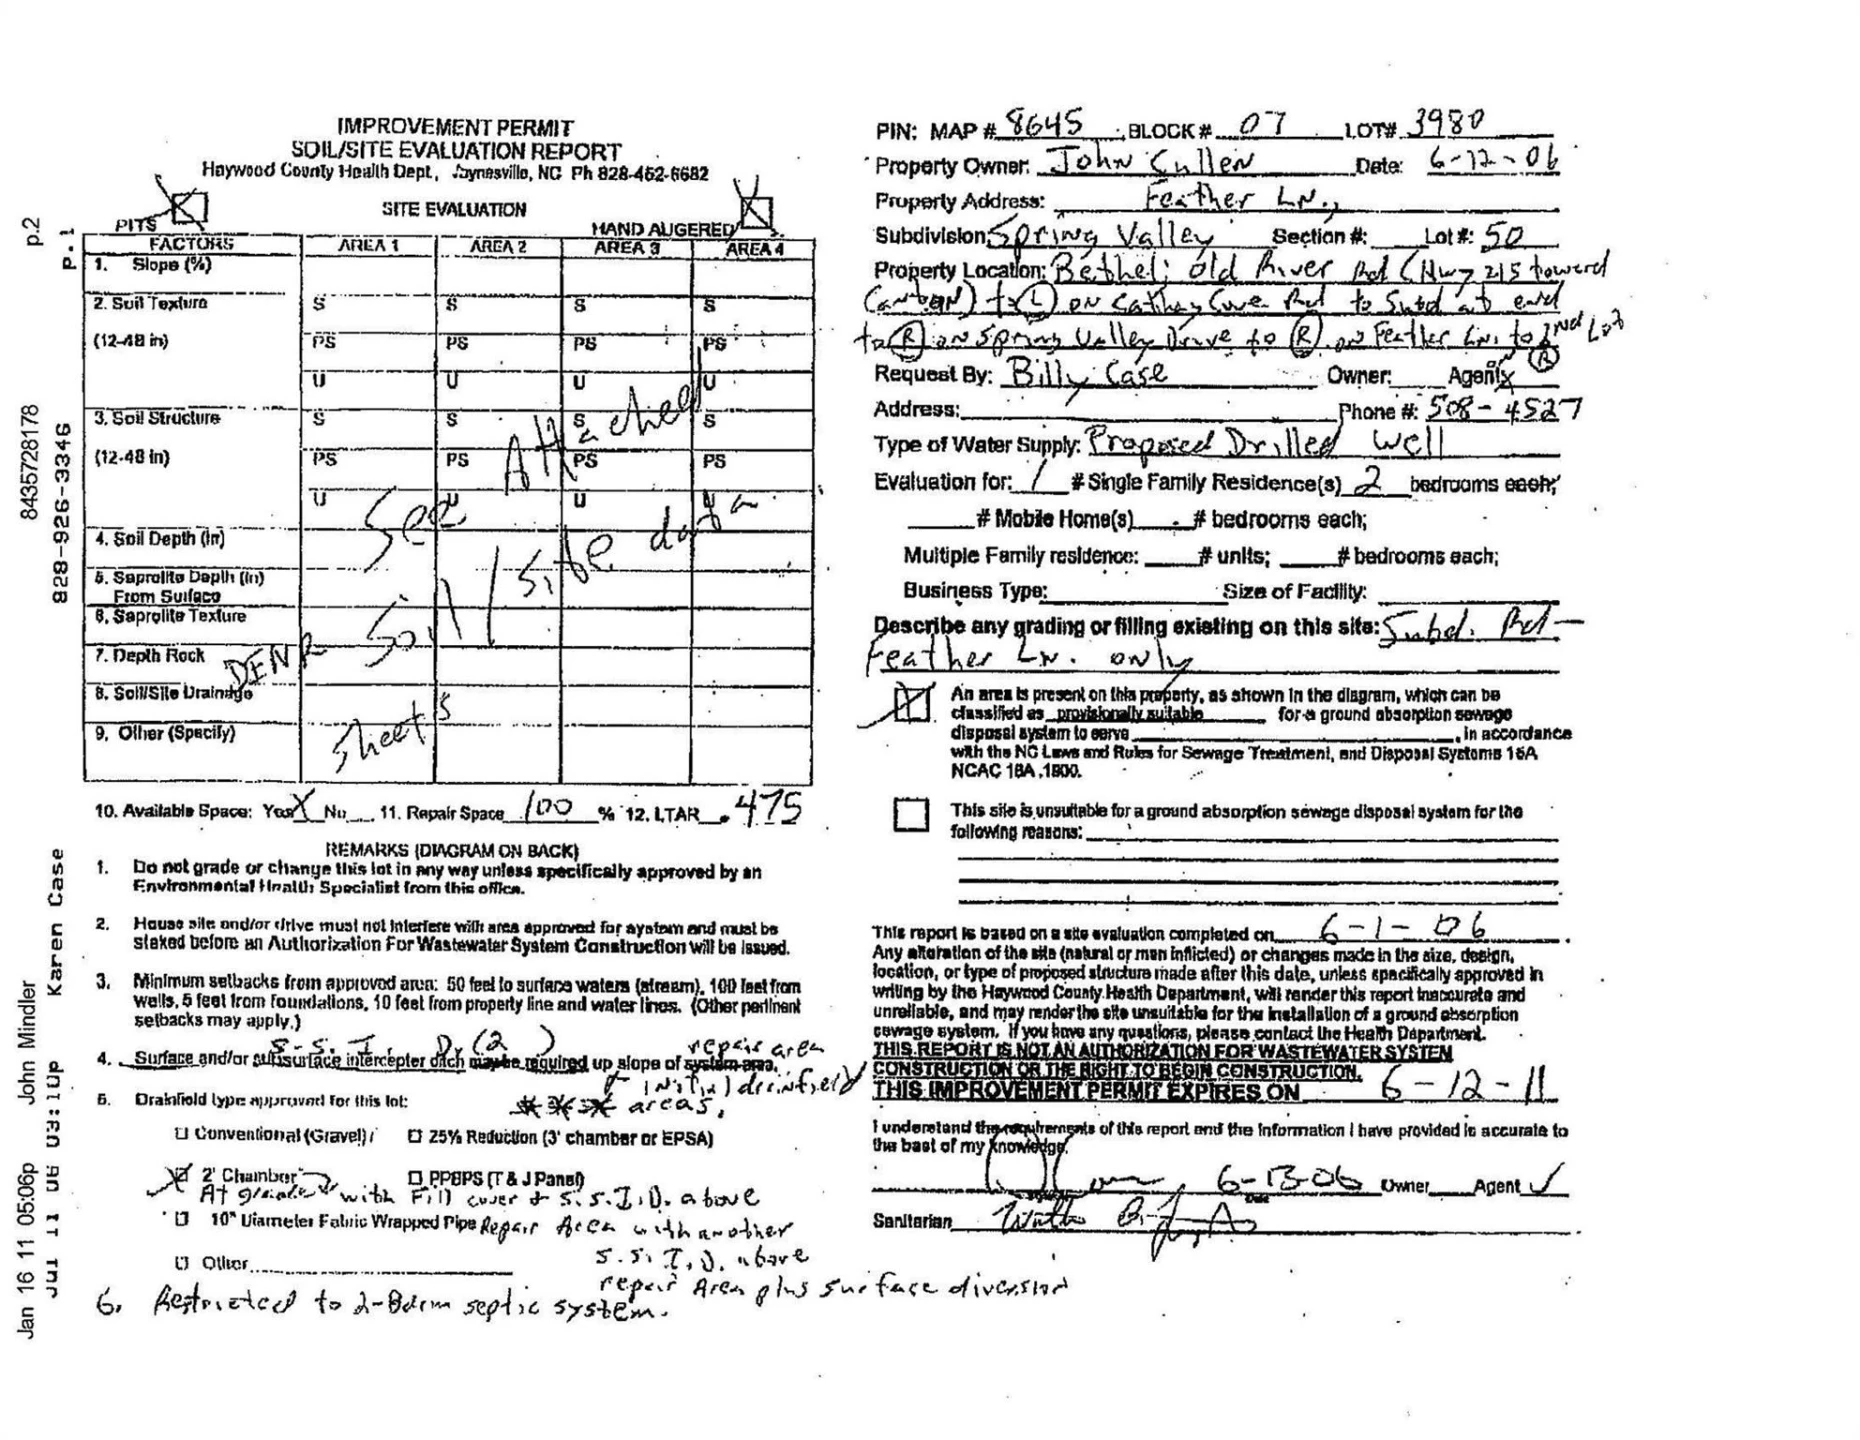 IMPROVEMENT PERMIT
SOIL/SITE EVALUATION REPORT
Haywood County Health Dept., Waynesville, NC Ph 828-452-6682
SITE EVALUATION
PITS
HAND AUGERED
FACTORS AREA 1 AREA 2 AREA 3 AREA 4
1. Slope (%)
2. Soil Texture S S S S
(12-48 in) PS PS PS PS
U U U U
3. Soil Structure S S S S
(12-48 in) PS PS PS PS
U U U U
4. Soil Depth (in)
5. Saprolite Depth (in)
From Surface
6. Saprolite Texture
7. Depth Rock
8. Soil/Site Drainage
9. Other (Specify)
See Attached
DENR Soil / Site data
sheets
10. Available Space: Yes X No 11. Repair Space 100 % 12. LTAR .475
REMARKS (DIAGRAM ON BACK)
1. Do not grade or change this lot in any way unless specifically approved by an
Environmental Health Specialist from this office.
2. House site and/or drive must not interfere with area approved for system and must be
staked before an Authorization For Wastewater System Construction will be issued.
3. Minimum setbacks from approved area: 50 feet to surface waters (stream), 100 feet from
wells, 5 feet from foundations, 10 feet from property line and water lines. (Other pertinent
setbacks may apply.)
S.S.I.D. (2) repair area
4. Surface and/or subsurface intercepter ditch may be required up slope of system area.
+ initial drainfield
areas.
5. Drainfield type approved for this lot: ***
Conventional (Gravel) 25% Reduction (3' chamber or EPSA)
2' Chamber PPBPS (T & J Panel)
At grade with Fill cover + S.S.I.D. above
10" Diameter Fabric Wrapped Pipe Repair Area with another
S.S.I.D. above
Other
repair Area plus surface diversion
6. Restricted to 2-Bdrm septic system.
PIN: MAP # 8645 BLOCK # 07 LOT# 3980
Property Owner: John Cullen Date: 6-12-06
Property Address: Feather LN.,
Subdivision: Spring Valley Section #: Lot #: 50
Property Location: Bethel; Old River Rd (Hwy 215 toward
Canton) to (L) on Cathey Cove Rd to Subd at end
to (R) on Spring Valley Drive to (R) on Feather LN. to 2nd Lot
on (R)
Request By: Billy Case Owner: Agent: X
Address: Phone #: 508-4527
Type of Water Supply: Proposed Drilled Well
Evaluation for: 1 # Single Family Residence(s) 2 bedrooms each;
# Mobile Home(s) # bedrooms each;
Multiple Family residence: # units; # bedrooms each;
Business Type: Size of Facility:
Describe any grading or filling existing on this site: Subd. Rd -
Feather LN. only
An area is present on this property, as shown in the diagram, which can be
classified as provisionally suitable for a ground absorption sewage
disposal system to serve , in accordance
with the NC Laws and Rules for Sewage Treatment, and Disposal Systems 15A
NCAC 18A .1900.
This site is unsuitable for a ground absorption sewage disposal system for the
following reasons:
This report is based on a site evaluation completed on 6-1-06.
Any alteration of the site (natural or man inflicted) or changes made in the size, design,
location, or type of proposed structure made after this date, unless specifically approved in
writing by the Haywood County Health Department, will render this report inaccurate and
unreliable, and may render the site unsuitable for the installation of a ground absorption
sewage system. If you have any questions, please contact the Health Department.
THIS REPORT IS NOT AN AUTHORIZATION FOR WASTEWATER SYSTEM
CONSTRUCTION OR THE RIGHT TO BEGIN CONSTRUCTION.
THIS IMPROVEMENT PERMIT EXPIRES ON 6-12-11
I understand the requirements of this report and the information I have provided is accurate to
the best of my knowledge.
6-13-06 Owner Agent ✓
Date
Sanitarian
Jan 16 11 05:06p John Mindler 8435728178 p.2
Jul 11 06 03:10p Karen Case 828-926-3346 p.1